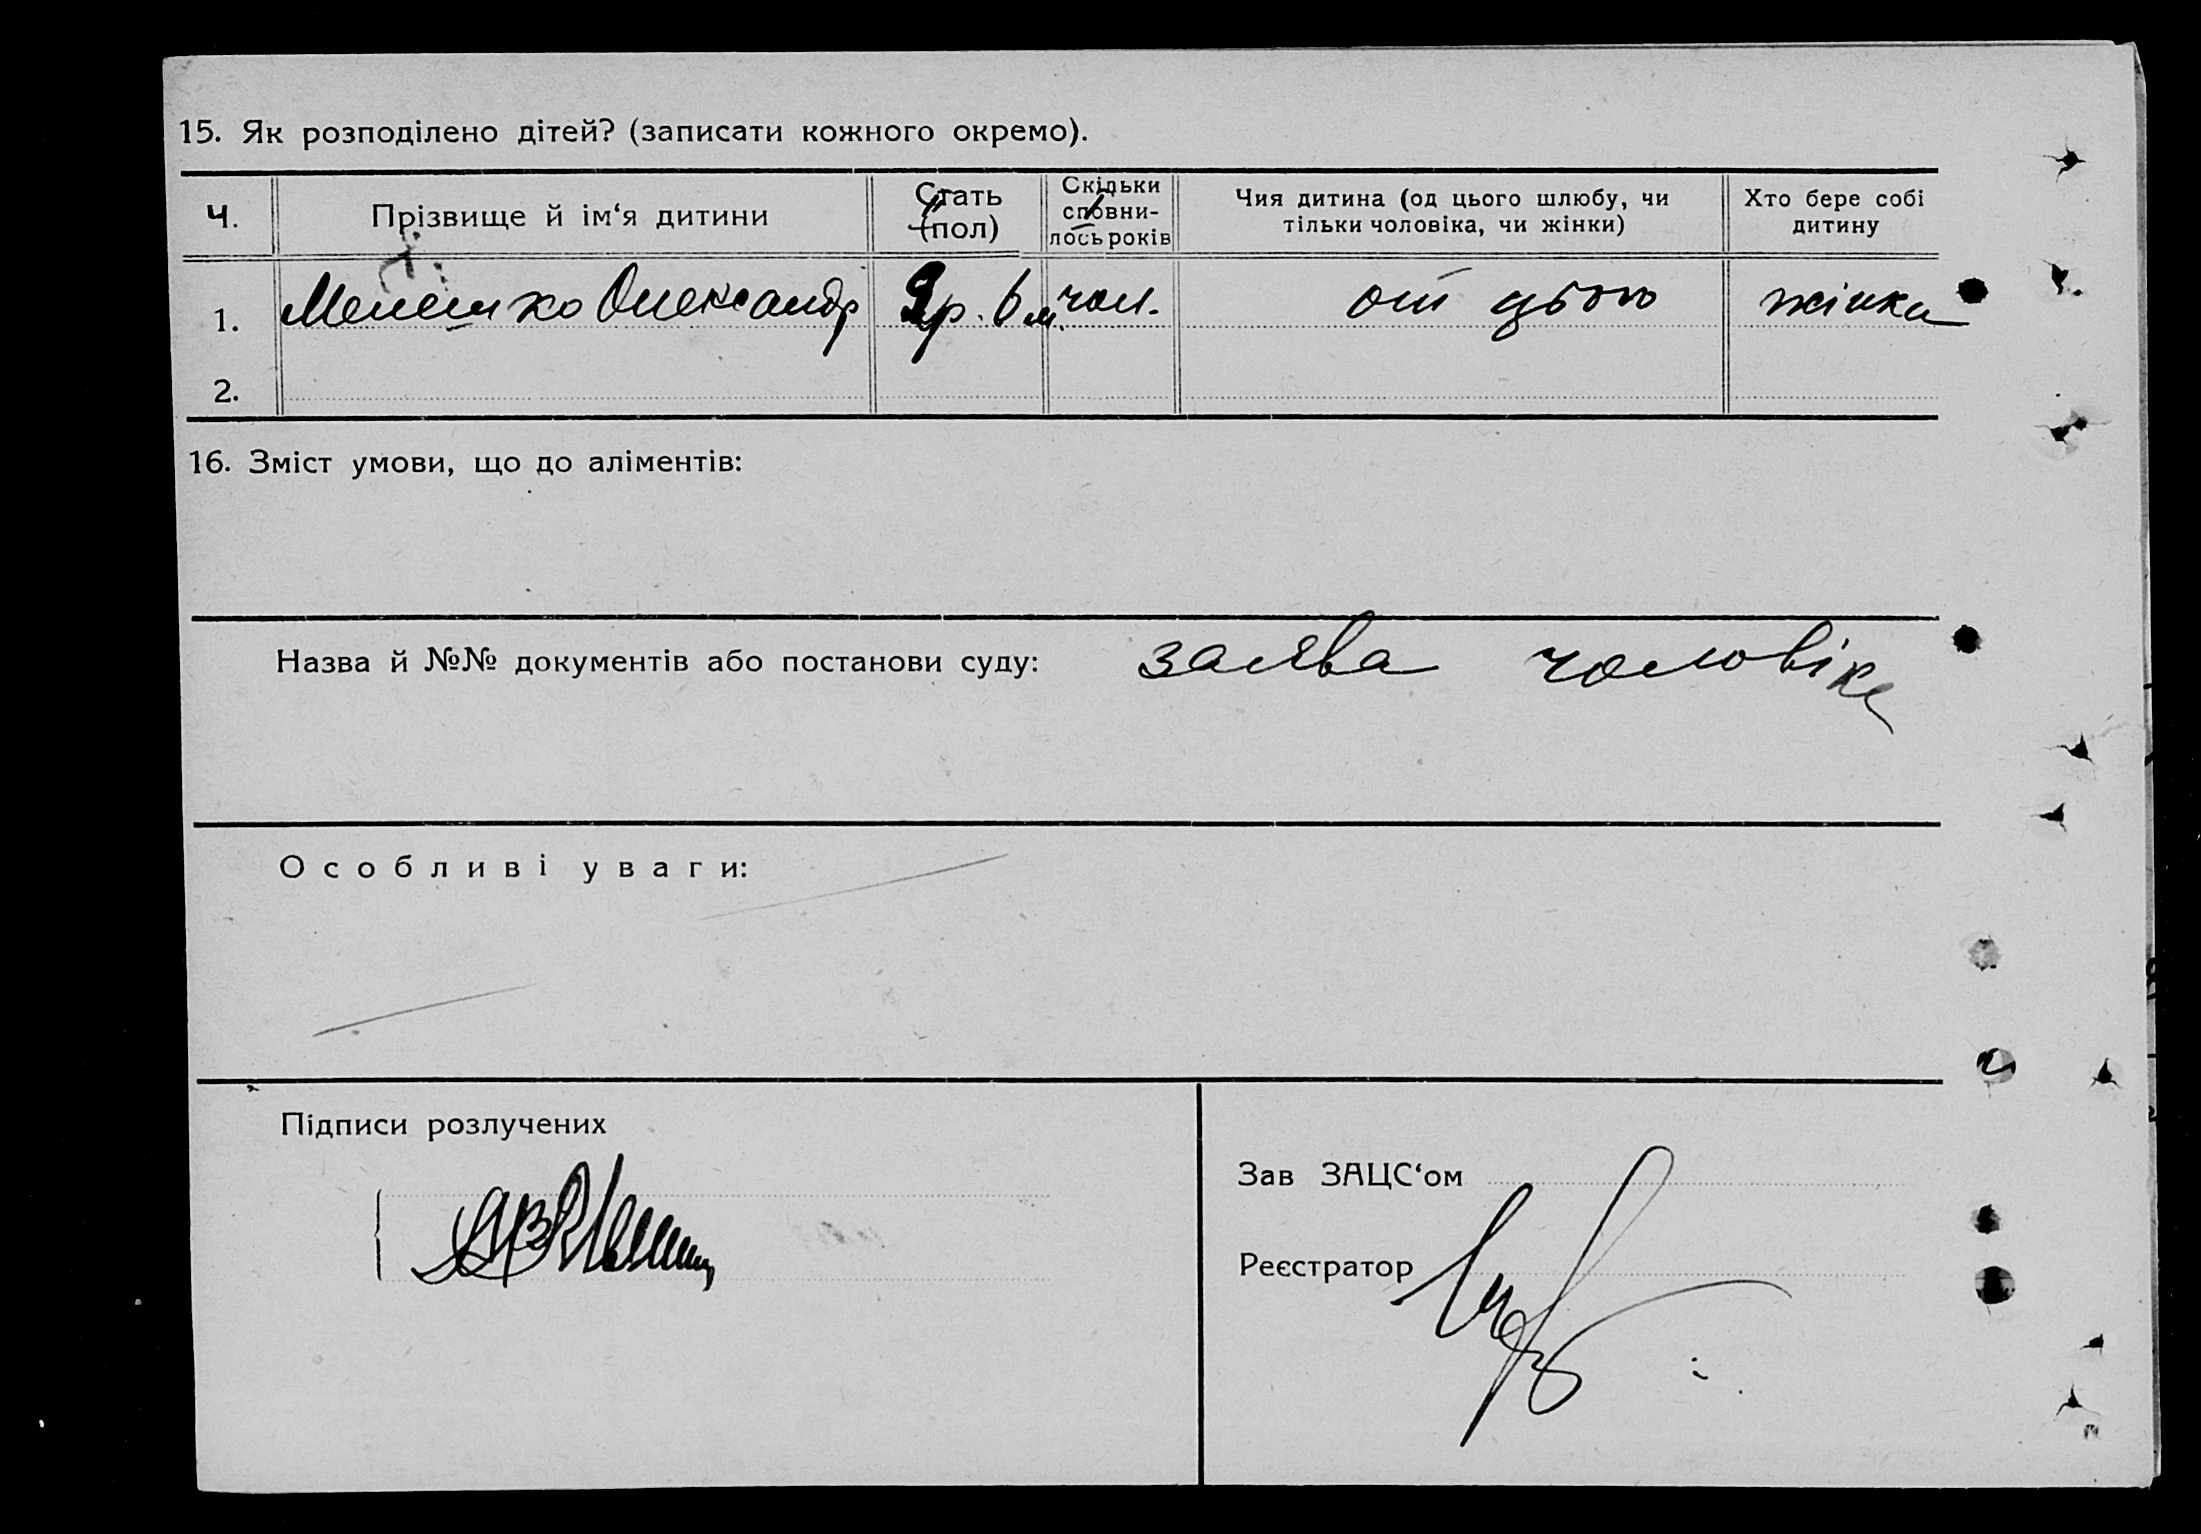 15. Як розподілено дітей? (записати кожного окремо).
Ч. Прізвище й ім‘я дитини Стать (пол) Скільки сповнилось років Чия дитина (од цього шлюбу, чи тільки чоловіка, чи жінки) Хто бере собі дитину
1. Мелешко Олександр р. 6 м. чол. от цього жінка
2.
16. Зміст умови, що до аліментів:
Назва й №№ документів або постанови суду: заява чоловіка
Особливі уваги:
Підписи розлучених
Зав ЗАЦС‘ом
Реєстратор